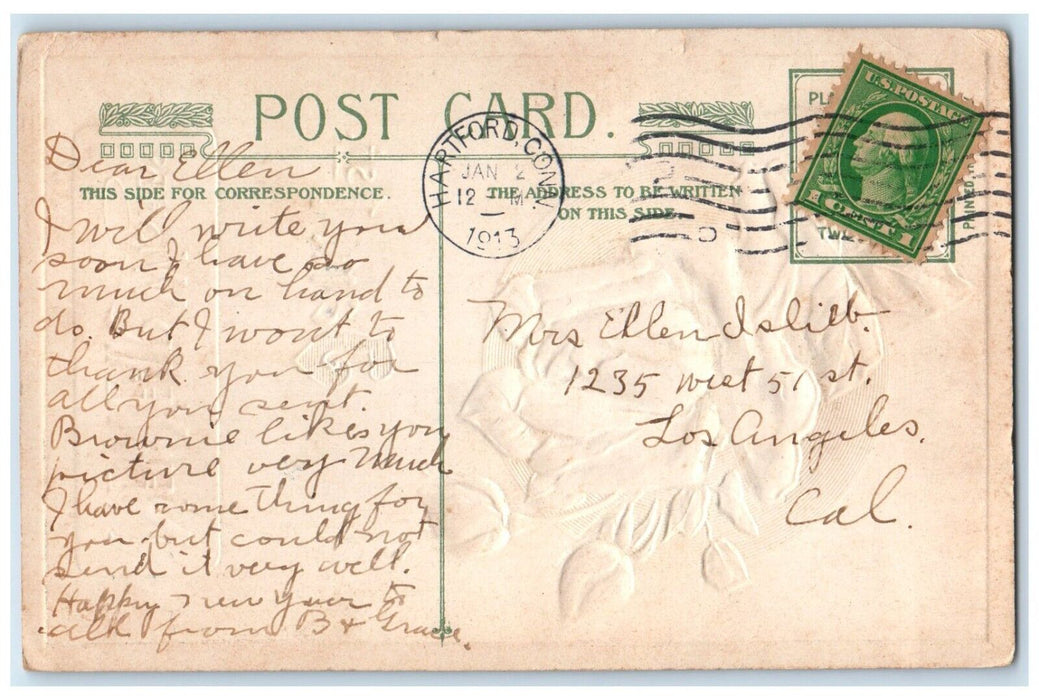 POST CARD.
Dear Ellen
THIS SIDE FOR CORRESPONDENCE.
THE ADDRESS TO BE WRITTEN
ON THIS SIDE.
HARTFORD, CONN.
JAN 2
12 M.
1913
U.S. POSTAGE
1 CENT 1
PL
TW
PRINTED
I will write you
soon I have so
much on hand to
do. But I want to
thank you for
all you sent.
Brownie likes you
picture very much
I have some thing for
you but could not
send it very well.
Happy new year to
all from B & Grace.
Mrs Ellen Islieb.
1235 west 51 st.
Los Angeles.
Cal.